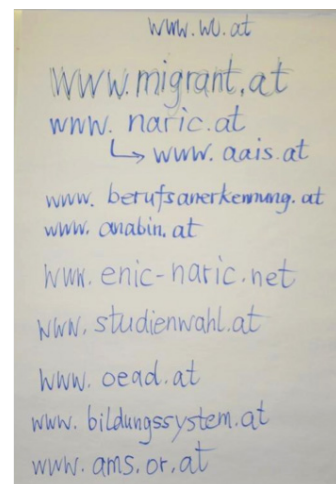 www.wu.at
www.migrant.at
www. naric.at
↳ www. aais.at
www. berufsanerkennung.at
www. anabin.at
www. enic-naric.net
www. studienwahl.at
www. oead.at
www. bildungssystem.at
www. ams.or.at